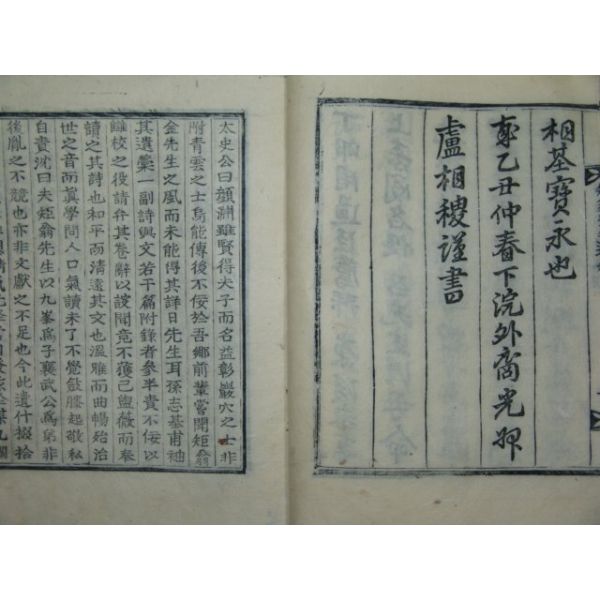 相基寶永也
乙丑仲春下浣外裔光州
盧相稷謹書
太史公曰顔淵雖賢得夫子而名益彰巖穴之士非
附青雲之士烏能傳後不佞於吾鄕前輩嘗聞矩翁
金先生之風而未能得其詳日先生耳孫志基甫袖
其遺藁一副詩與文若干篇附錄者參半責不佞以
讎校之役請弁其卷辭以諛聞竟不獲已盥薇而奉
讀之其詩也和平而淸遠其文也溫雅而曲暢殆治
世之音而眞學問人口氣讀未了不覺斂膝起敬私
自責沈曰夫矩翁先生以九峯爲子襄武公爲弟非
後胤之不競也亦非文獻之不足也今此遺什掇拾